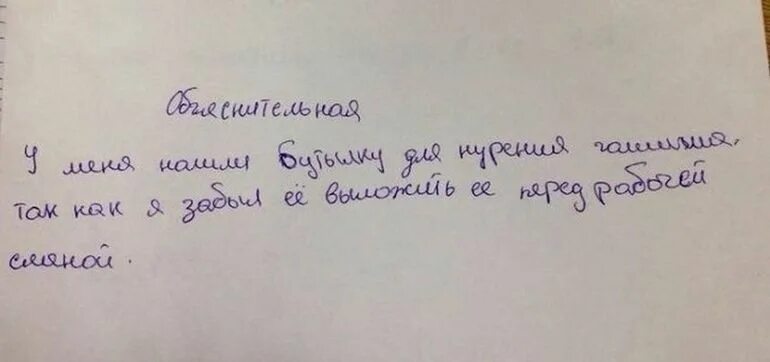 Объяснительная
У меня нашли бутылку для курения гашиша,
так как я забыл её выложить ее перед рабочей
сменой.